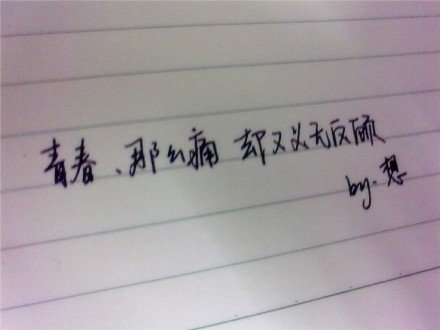 青春、那么痛 却又义无反顾
by.想